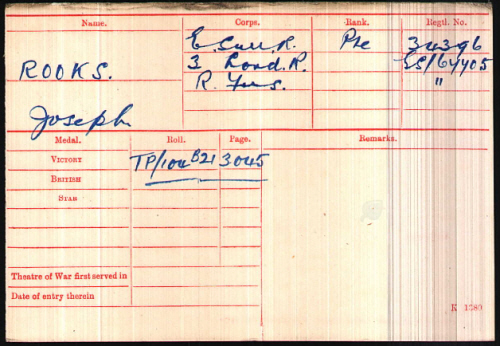 Name. Corps. Rank. Regtl. No.
ROOKS. E. Surr. R. Pte 34396
3 Lond. R. GS/64405
Joseph R. Fus. "
Medal. Roll. Page. Remarks.
VICTORY TP/104 B21 3045
BRITISH
STAR
Theatre of War first served in
Date of entry therein
K 1380